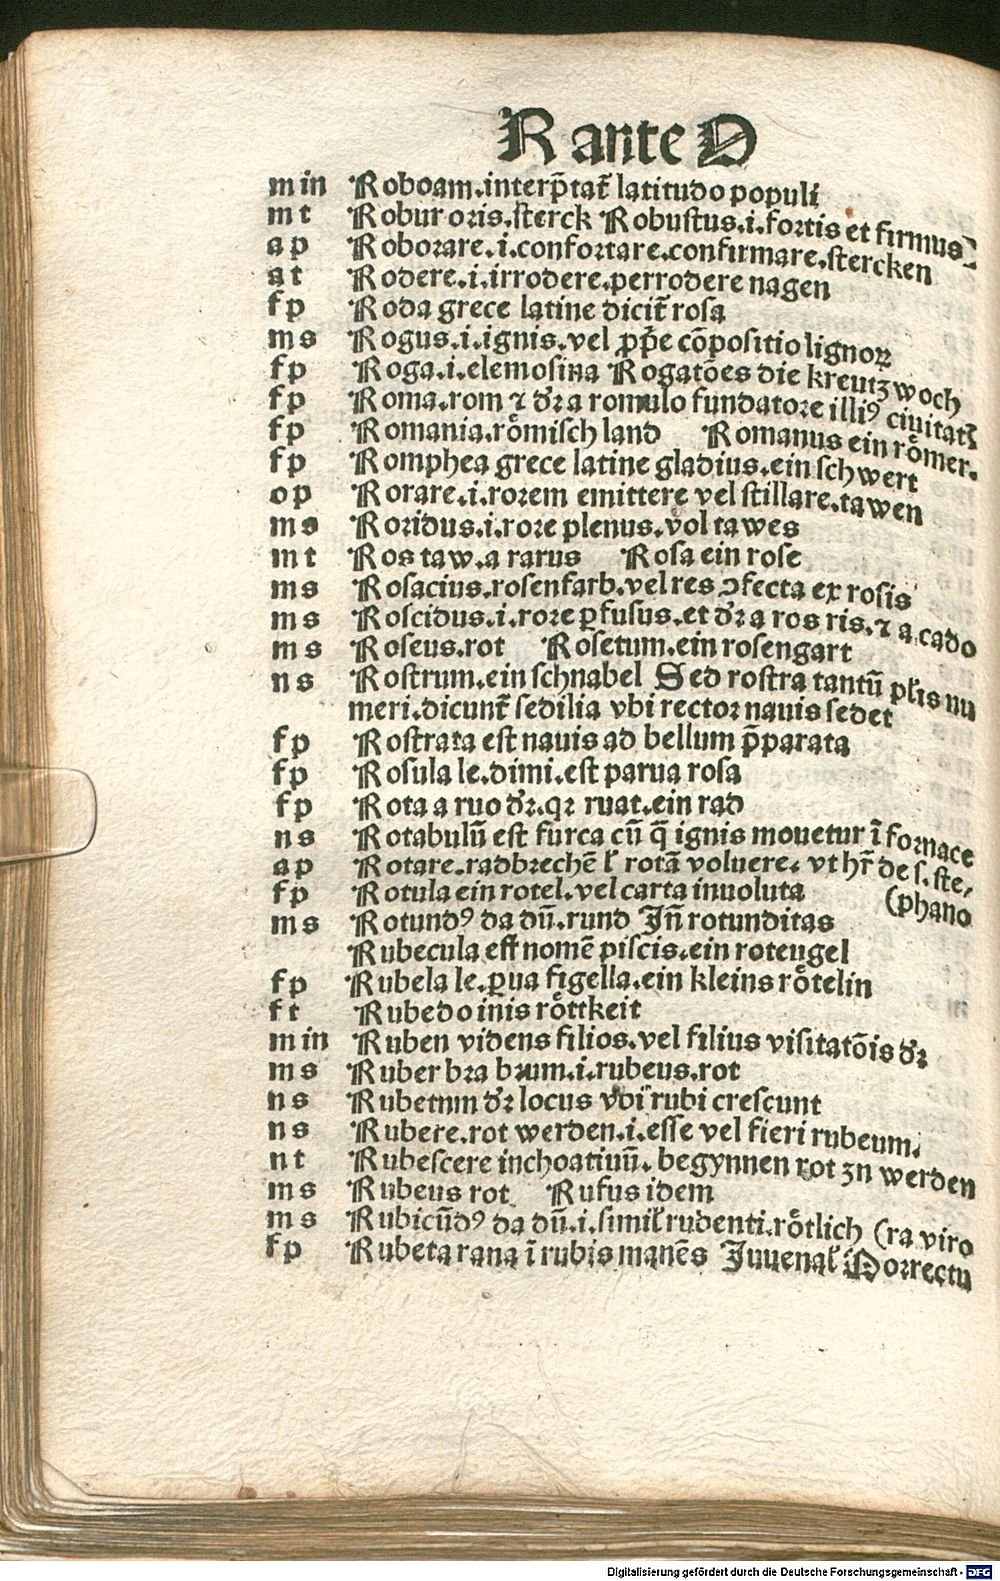 R ante O
m in Roboam.interp̄tat̄ latitudo populi
m t Robur oris.sterck Robustus.i.fortis et firmus
a p Roborare.i.confortare.confirmare.stercken
a t Rodere.i.irrodere.perrodere nagen
f p Roda grece latine dicit̄ rosa
m s Rogus.i.ignis.vel ꝓp̄e cōpositio lignoꝝ
f p Roga.i.elemosina Rogatōes die kreutzwoch
f p Roma.rom ⁊ dr̄ a romulo fundatore illiꝰ ciuitat̄
f p Romania.römisch land Romanus ein römer.
f p Romphea grece latine gladius.ein schwert
o p Rorare.i.rorem emittere vel stillare.tawen
m s Roridus.i.rore plenus.vol tawes
m t Ros taw.a rarus Rosa ein rose
m s Rosacius.rosenfarb.vel res ↄfecta ex rosis
m s Roscidus.i.rore ꝑfusus.et dr̄ a ros ris.⁊ a cado
m s Roseus.rot Rosetum.ein rosengart
n s Rostrum.ein schnabel Sed rostra tantū pl̄is nu
meri.dicunt̄ sedilia vbi rector nauis sedet
f p Rostrata est nauis ad bellum p̄parata
f p Rosula le.dimi.est parua rosa
f p Rota a ruo dr̄.qꝛ ruat.ein rad
n s Rotabulū est furca cū q̄ ignis mouetur ī fornace
a p Rotare.radbrechē ł rotā voluere. vt hr̄ de s.ste,
f p Rotula ein rotel.vel carta inuoluta (phano
m s Rotundꝰ da dū.rund Jn̄ rotunditas
Rubecula est nomē piscis.ein roteugel
f p Rubela le.ꝑua figella.ein kleins rötelin
f t Rubedo inis röttkeit
m in Ruben videns filios.vel filius visitatōis dr̄
m s Ruber bra brum.i.rubeus.rot
n s Rubetum dr̄ locus vbi rubi crescunt
n s Rubere.rot werden.i.esse vel fieri rubeum.
n t Rubescere inchoatiuū. begynnen rot zn werden
m s Rubeus rot Rufus idem
m s Rubicūdꝰ da dū.i.simił rudenti.rötlich (ra viro
f p Rubeta rana ī rubis manēs Juuenał Porrectu
Digitalisierung gefördert durch die Deutsche Forschungsgemeinschaft - DFG